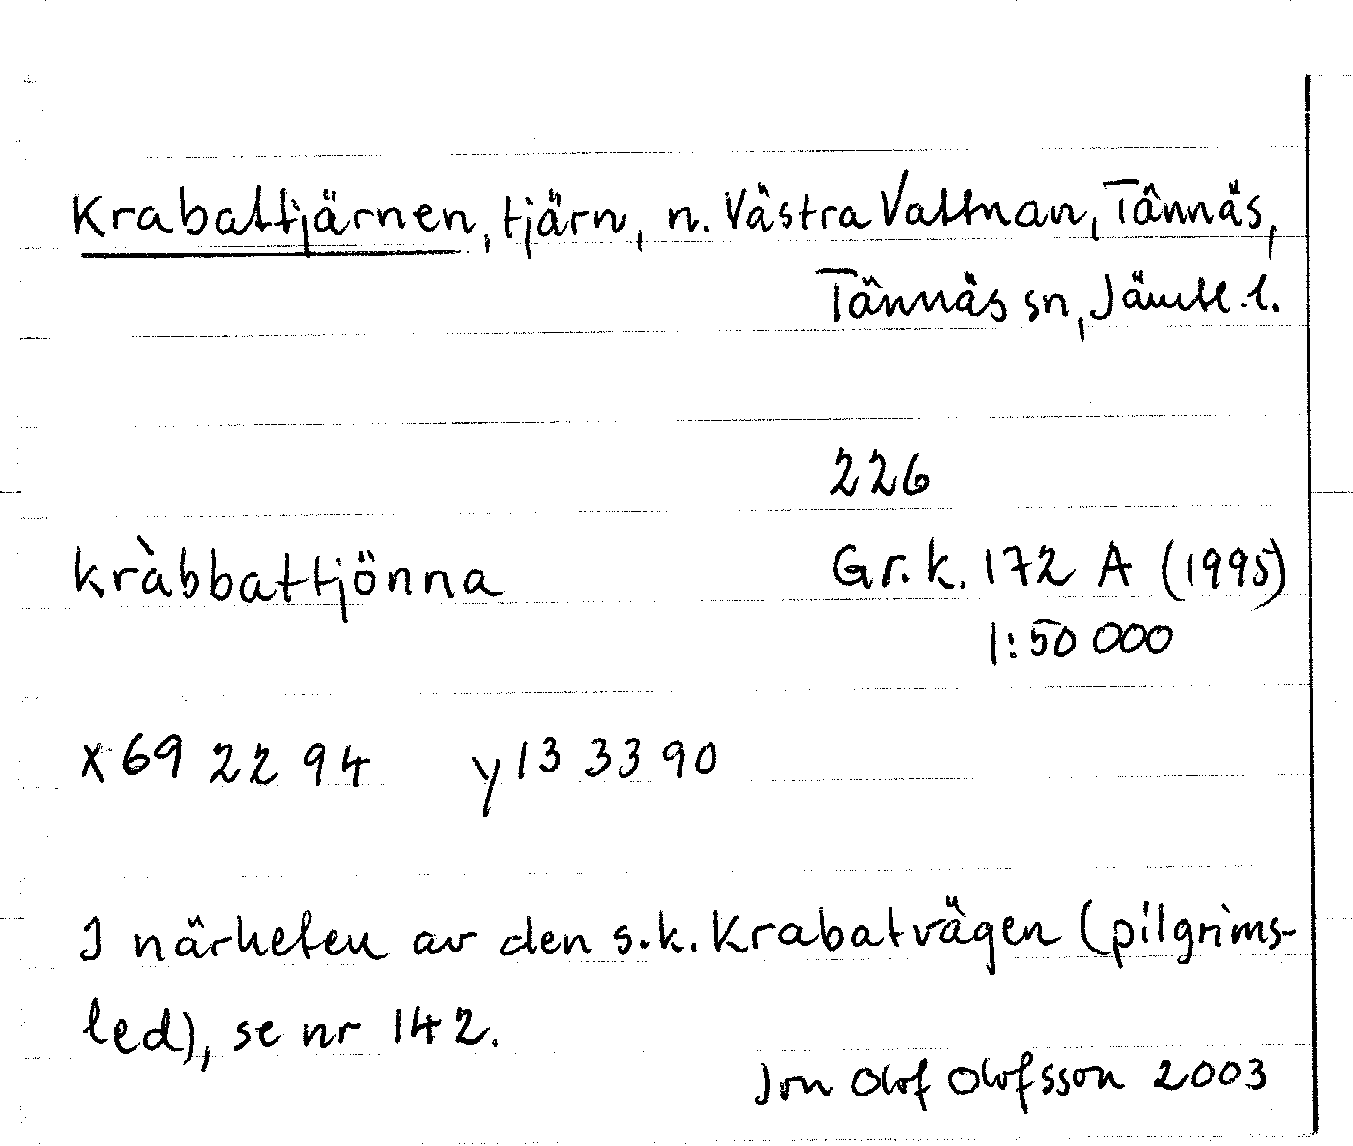 Krabattjärnen, tjärn, n. Västra Vattnan, Tännäs,
Tännäs sn, Jämtl. l.
226
kràbbattjönna Gr. k. 172 A (1995)
1:50 000
x 69 22 94 y 13 33 90
I närheten av den s.k. Krabatvägen (pilgrims-
led), se nr 142.
Jon Olof Olofsson 2003